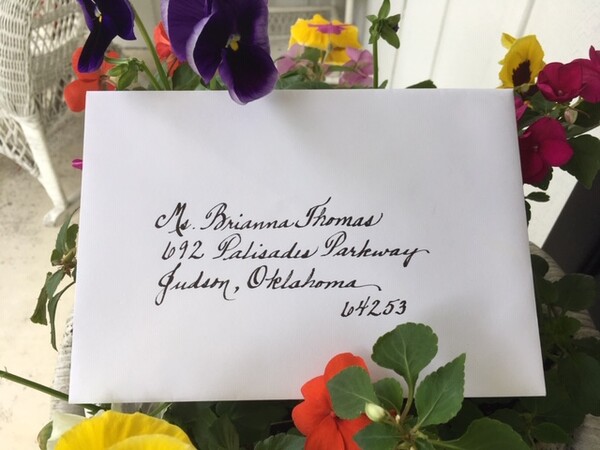 Ms. Brianna Thomas
692 Palisades Parkway
Judson, Oklahoma
64253